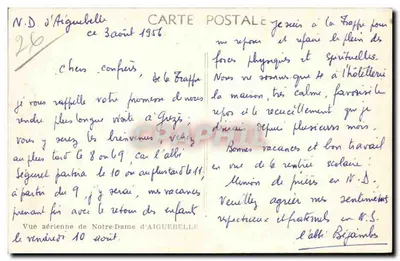 N. D. d'Aiguebelle
CARTE POSTALE
26
ce 3 août 1956
Cher confrère,
de la Trappe
je vous rappelle votre promesse de nous
rendre plus longue visite à
vous y serez les bienvenus
au plus tard le 8 ou le 9, car l'abbé
Séguret partira le 10 ou au plus tard le 11,
à partir du 9 j'y serai, mes vacances
prenant fin avec le retour des enfants
Vue aérienne de Notre-Dame d'AIGUEBELLE
le vendredi 10 août.
Je suis à la Trappe pour
me reposer et refaire le plein des
forces physiques et spirituelles.
Nous ne sommes que à l'hôtellerie
la maison, très calme, favorise le
repos et le recueillement que je
désirai depuis plusieurs mois.
Bonnes vacances et bon travail
en vue de la rentrée scolaire!
Union de prières en N. D.
Veuillez agréer mes sentiments
respectueux et fraternels en N. S.
l'abbé